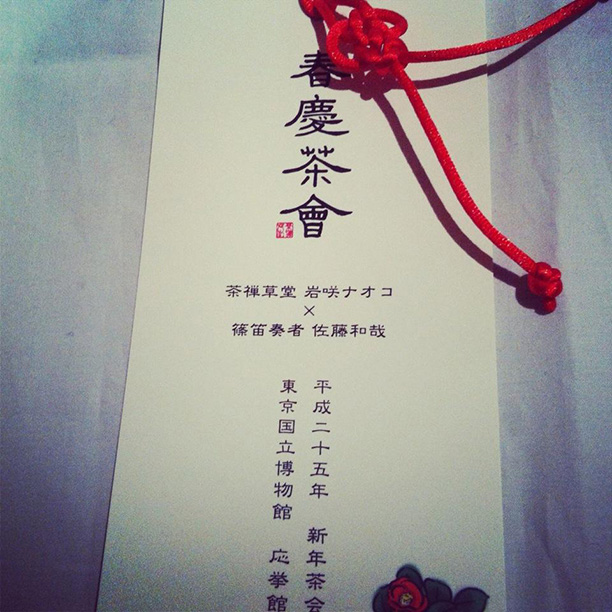 春慶茶會
茶禅草堂 岩咲ナオコ
×
篠笛奏者 佐藤和哉
平成二十五年 新年茶会
東京国立博物館 応挙館